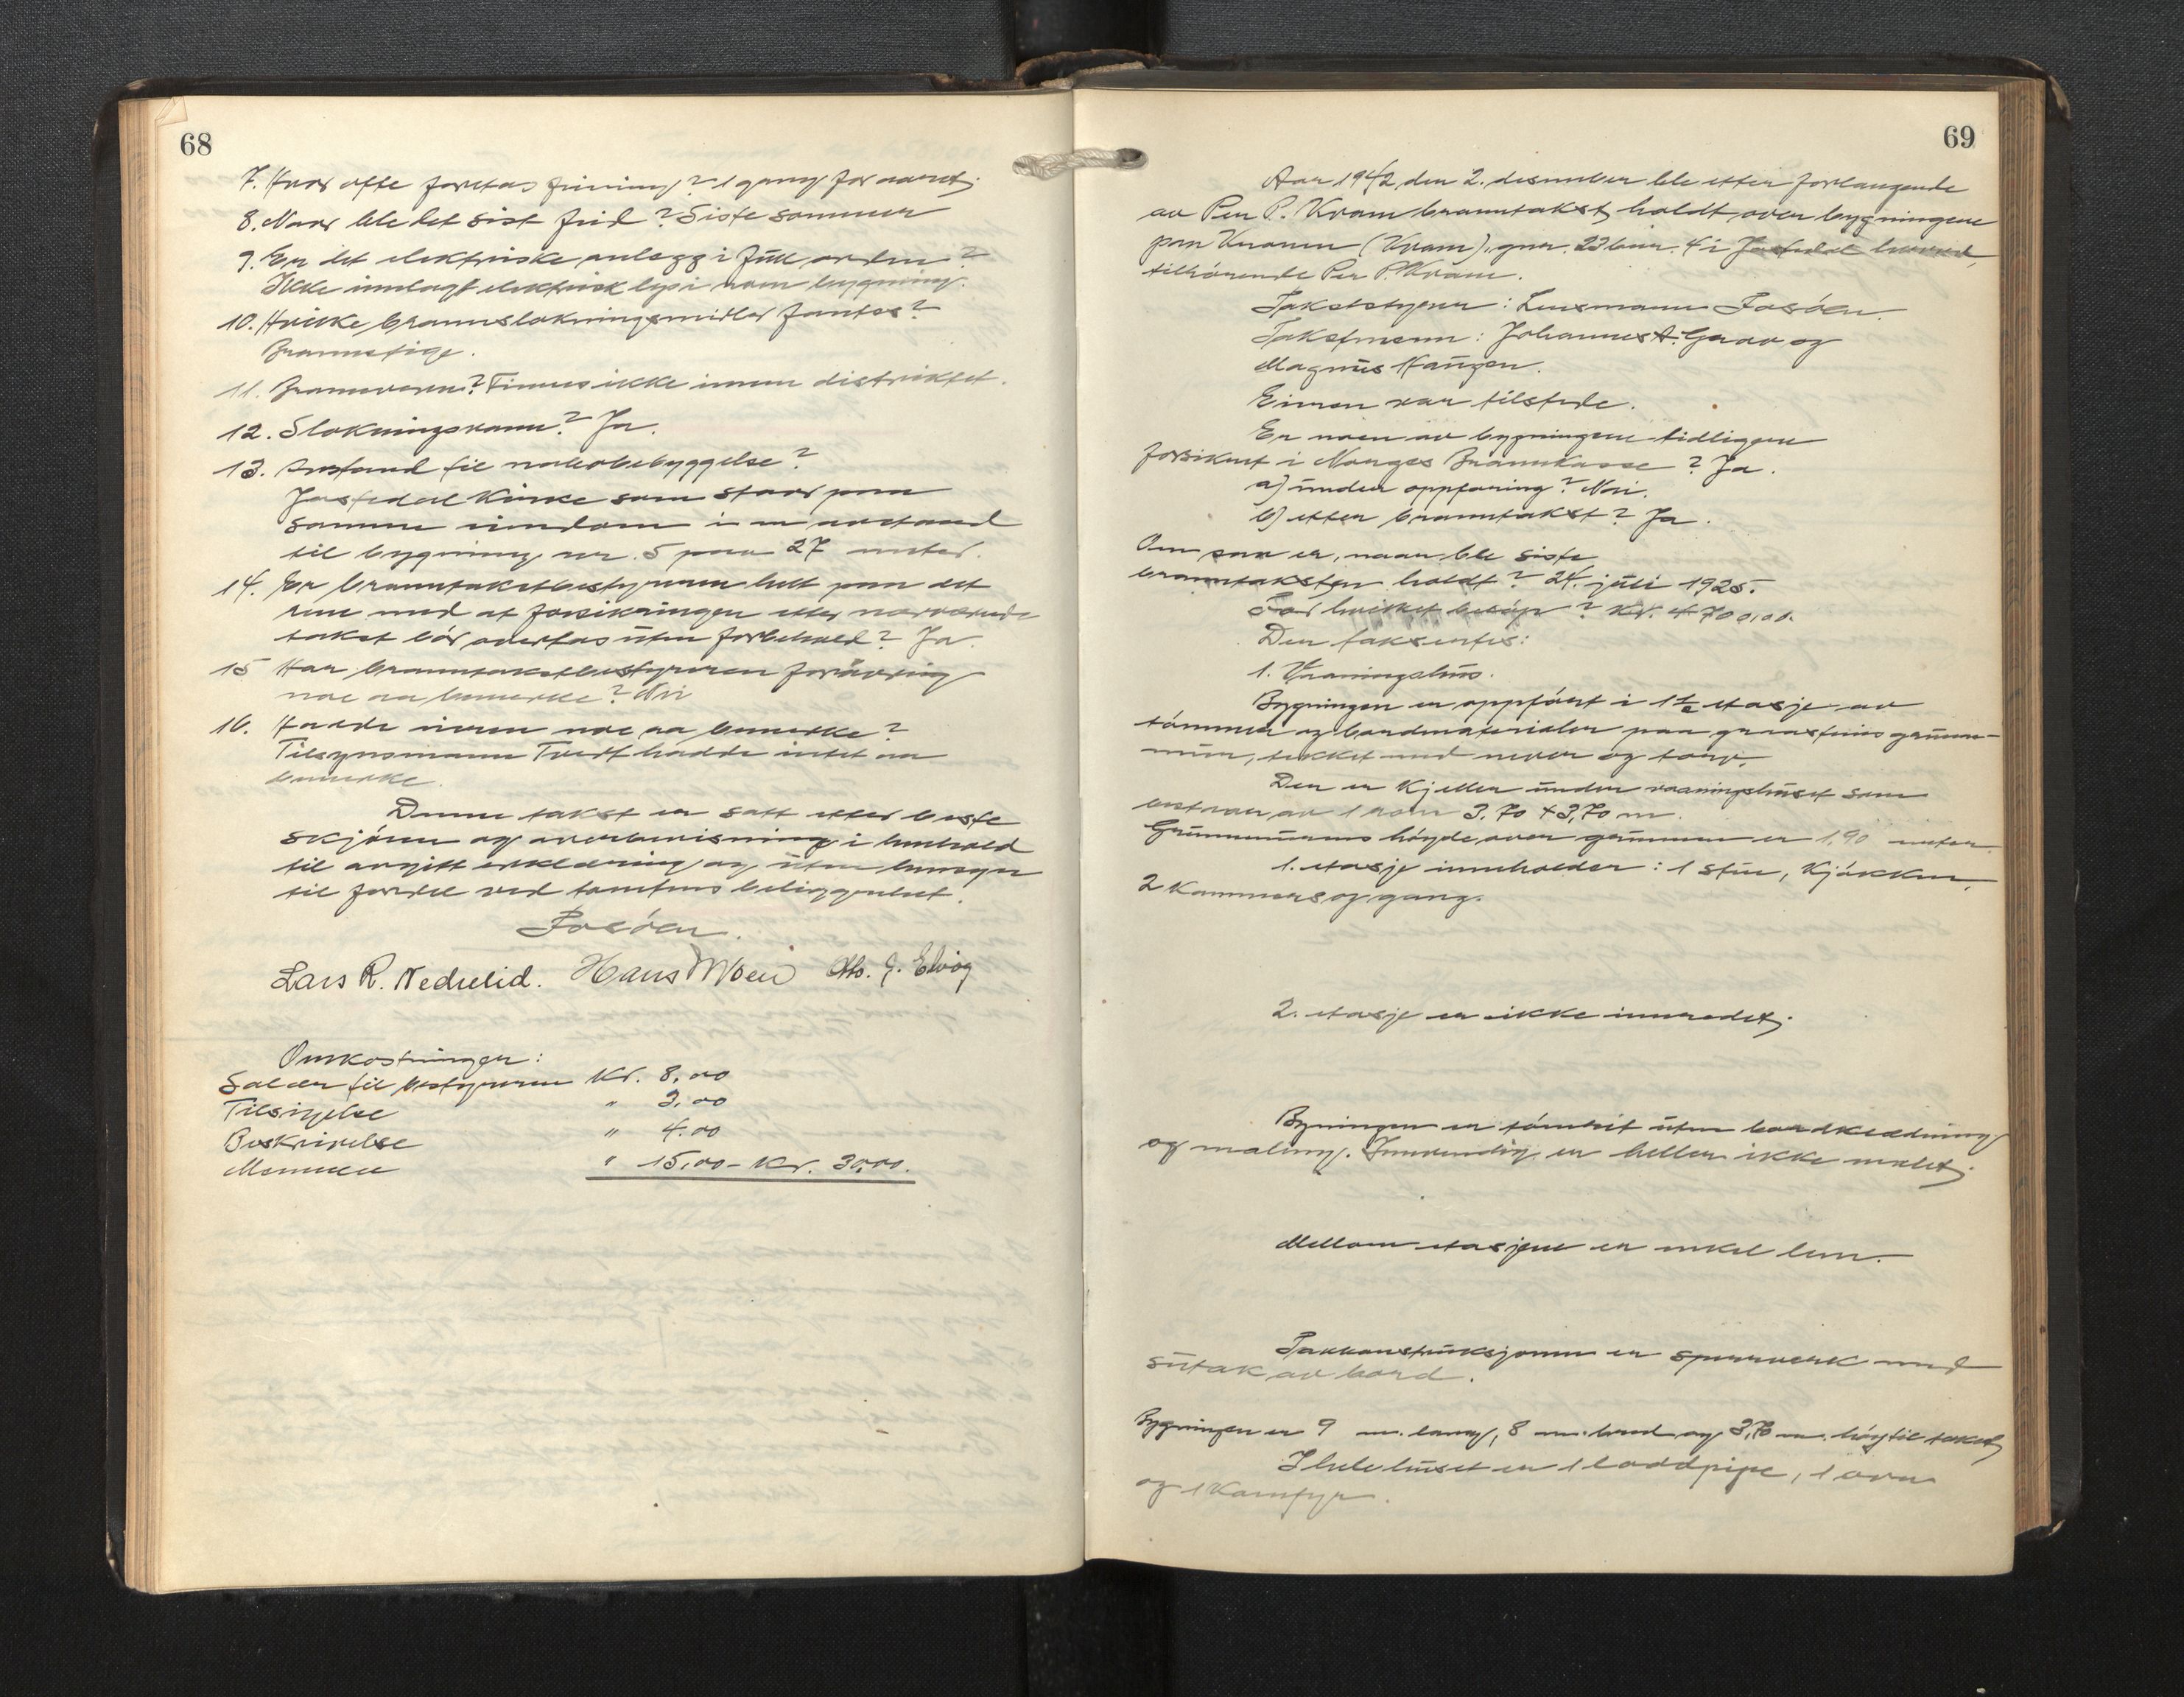 68
7. Hvor ofte foretas feiing? 1 gang for aaret.
8. Naar ble det sist feid? Siste sommer
9. Er det elektriske anlegg i full orden?
Ikke innlagt elektrisk lys i noen bygning.
10. Hvilke brannslokningsmidler fantes?
Brannstige.
11. Brannvern? Finnes ikke innen distriktet.
12. Slokningsvann? Ja.
13. Avstand til nabobebyggelse?
Jostedal Kirke som staar paa
samme eiendom i en avstand
til bygning nr. 5 paa 27 meter.
14. Er branntakstbestyreren helt paa det
rene med at forsikringen etter nærværende
takst bör overtas uten forbehold? Ja.
15 Har branntakstbestyreren forövrig
noe aa bemerke? Nei
16. Hadde noen noe aa bemerke?
Tilsynsmann Tveit hadde intet aa
bemerke.
Denne takst er satt etter beste
skjönn og overbevisning i henhold
til avgitt erklæring og uten hensyn
til fordel ved tomtens beliggenhet.
Fosöen.
Lars R. Nedrelid. Hans Moen Ths. J. Elvig
Omkostninger:
Salær til bestyreren Kr. 8,00
Tilsigelse " 3,00
Beskrivelse " 4.00
Mennene " 15,00 – Kr. 30,00.
69
Aar 1942, den 2. desember ble etter forlangende
av Per P. Kvam branntakst holdt over bygningene
paa Kvamen (Kvam), gnr. 23 bnr. 4 i Jostedal herred,
tilhörende Per P. Kvam.
Takststyrer: Lensmann Fosöen.
Takstmenn: Johannes A. Gjerde og
Magnus Haugen.
Eieren var tilstede.
Er noen av bygningene tidligere
forsikret i Norges Brannkasse? Ja.
a) under oppföring? Nei.
b) etter branntakst? Ja.
Om saa er, naar ble siste
branntaksten holdt? 24. juli 1925.
For hvilket belöp? Kr. 4700,00.
Den takserfes:
1. Vaaningshus.
Bygningen er oppfört i 1 1/2 etasje av
tömmer og bordmaterialer paa graasteins grunn-
mur, tekket med never og torv.
Der er Kjeller under vaaningshuset som
bestaar av 1 rom 3,70 + 3,70 m.
Grunnmurens höyde over grunnen er 1,90 meter.
1. etasje inneholder: 1 stue, Kjökken,
2 Kammers og gang.
2. etasje er ikke innredet.
Bygningen er tömret uten bordkledning
og maling. Innvendig er heller ikke malet.
Mellom etasjene er enkel lem.
Takkonstruksjonen er sperreverk med
sutak av bord.
Bygningen er 9 m. lang, 8 m. bred og 3,70 m. höy til taket
I hele huset er 1 loddpipe, 1 ovn
og 1 Komfyr.